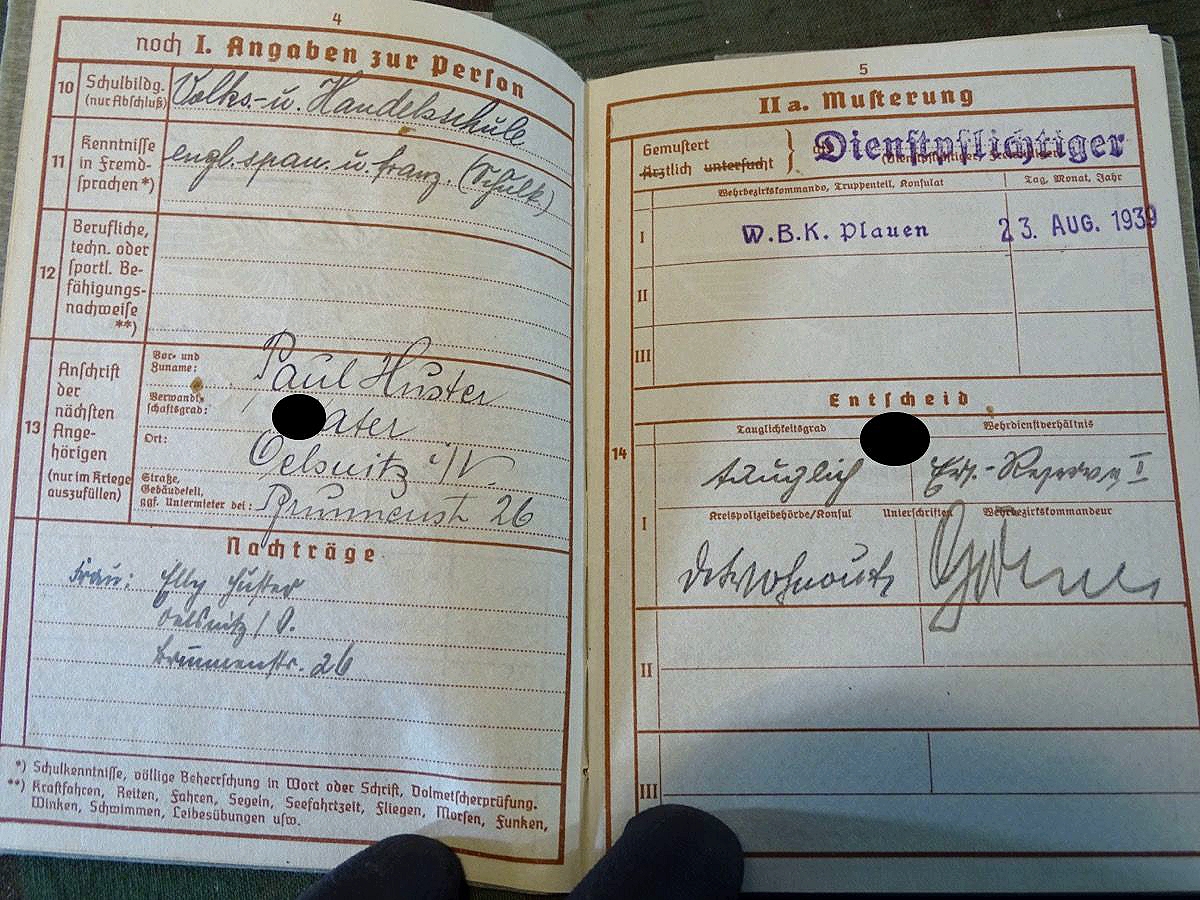 4
noch I. Angaben zur Person
10 Schulbildg. (nur Abschluß)
Volks- u. Handelsschule
11 Kenntnisse in Fremd-
sprachen *)
engl. span. u. franz. (Schulk)
12 Berufliche,
techn. oder
sportl. Be-
fähigungs-
nachweise
**)
13 Anschrift
der
nächsten
Ange-
hörigen
(nur im Kriege
auszufüllen)
Vor- und
Zuname:
Paul Huster
Verwandt-
schaftsgrad:
ater
Ort:
Oelsnitz i/V
Straße,
Gebäudeteil,
ggf. Untermieter bei:
Brunnenst 26
Nachträge
Frau: Elly Huster
Oelsnitz / V.
Brunnenstr. 26
*) Schulkenntnisse, völlige Beherrschung in Wort oder Schrift, Dolmetscherprüfung.
**) Kraftfahren, Reiten, Fahren, Segeln, Seefahrtzeit, Fliegen, Morsen, Funken,
Winken, Schwimmen, Leibesübungen usw.
5
II a. Musterung
Gemustert
Ärztlich untersucht
Dienstpflichtiger
Wehrbezirkskommando, Truppenteil, Konsulat
Tag, Monat, Jahr
I W.B.K. Plauen 23. AUG. 1939
II
III
Entscheid
14
Tauglichkeitsgrad
Wehrdienstverhältnis
tauglich
Ers.-Reserve I
I
Kreispolizeibehörde/Konsul
Unterschriften
Wehrbezirkskommandeur
II
III